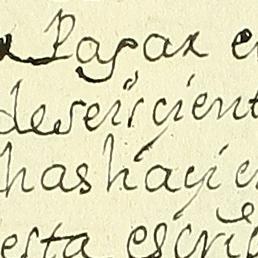 Pagar e
deseiscient
has haçie
esta escri